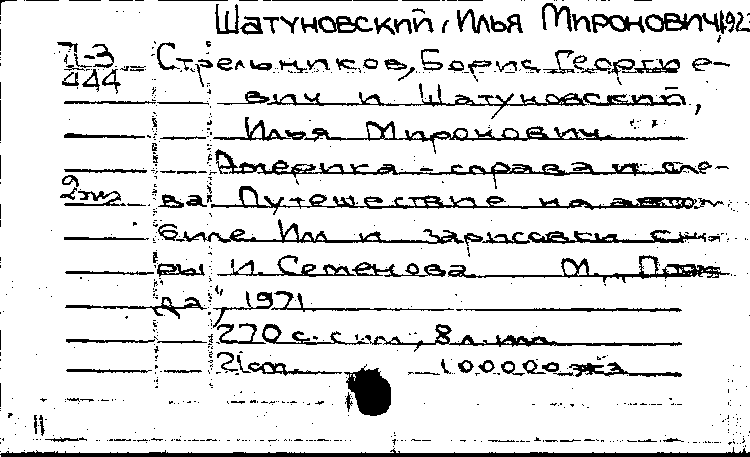 Шатуновский, Илья Миронович, 192
71-3 Стрельников, Борис Георгие-
444
вич и Шатуновский,
Илья Миронович.
Америка - справа и сле-
2 экз ва. Путешествие на автомо-
биле. Илл и зарисовки с
ры И. Семенова М., "Прав-
да", 1971
270 с. с илл., 8 л. илл.
21 cm. 100000 экз
11